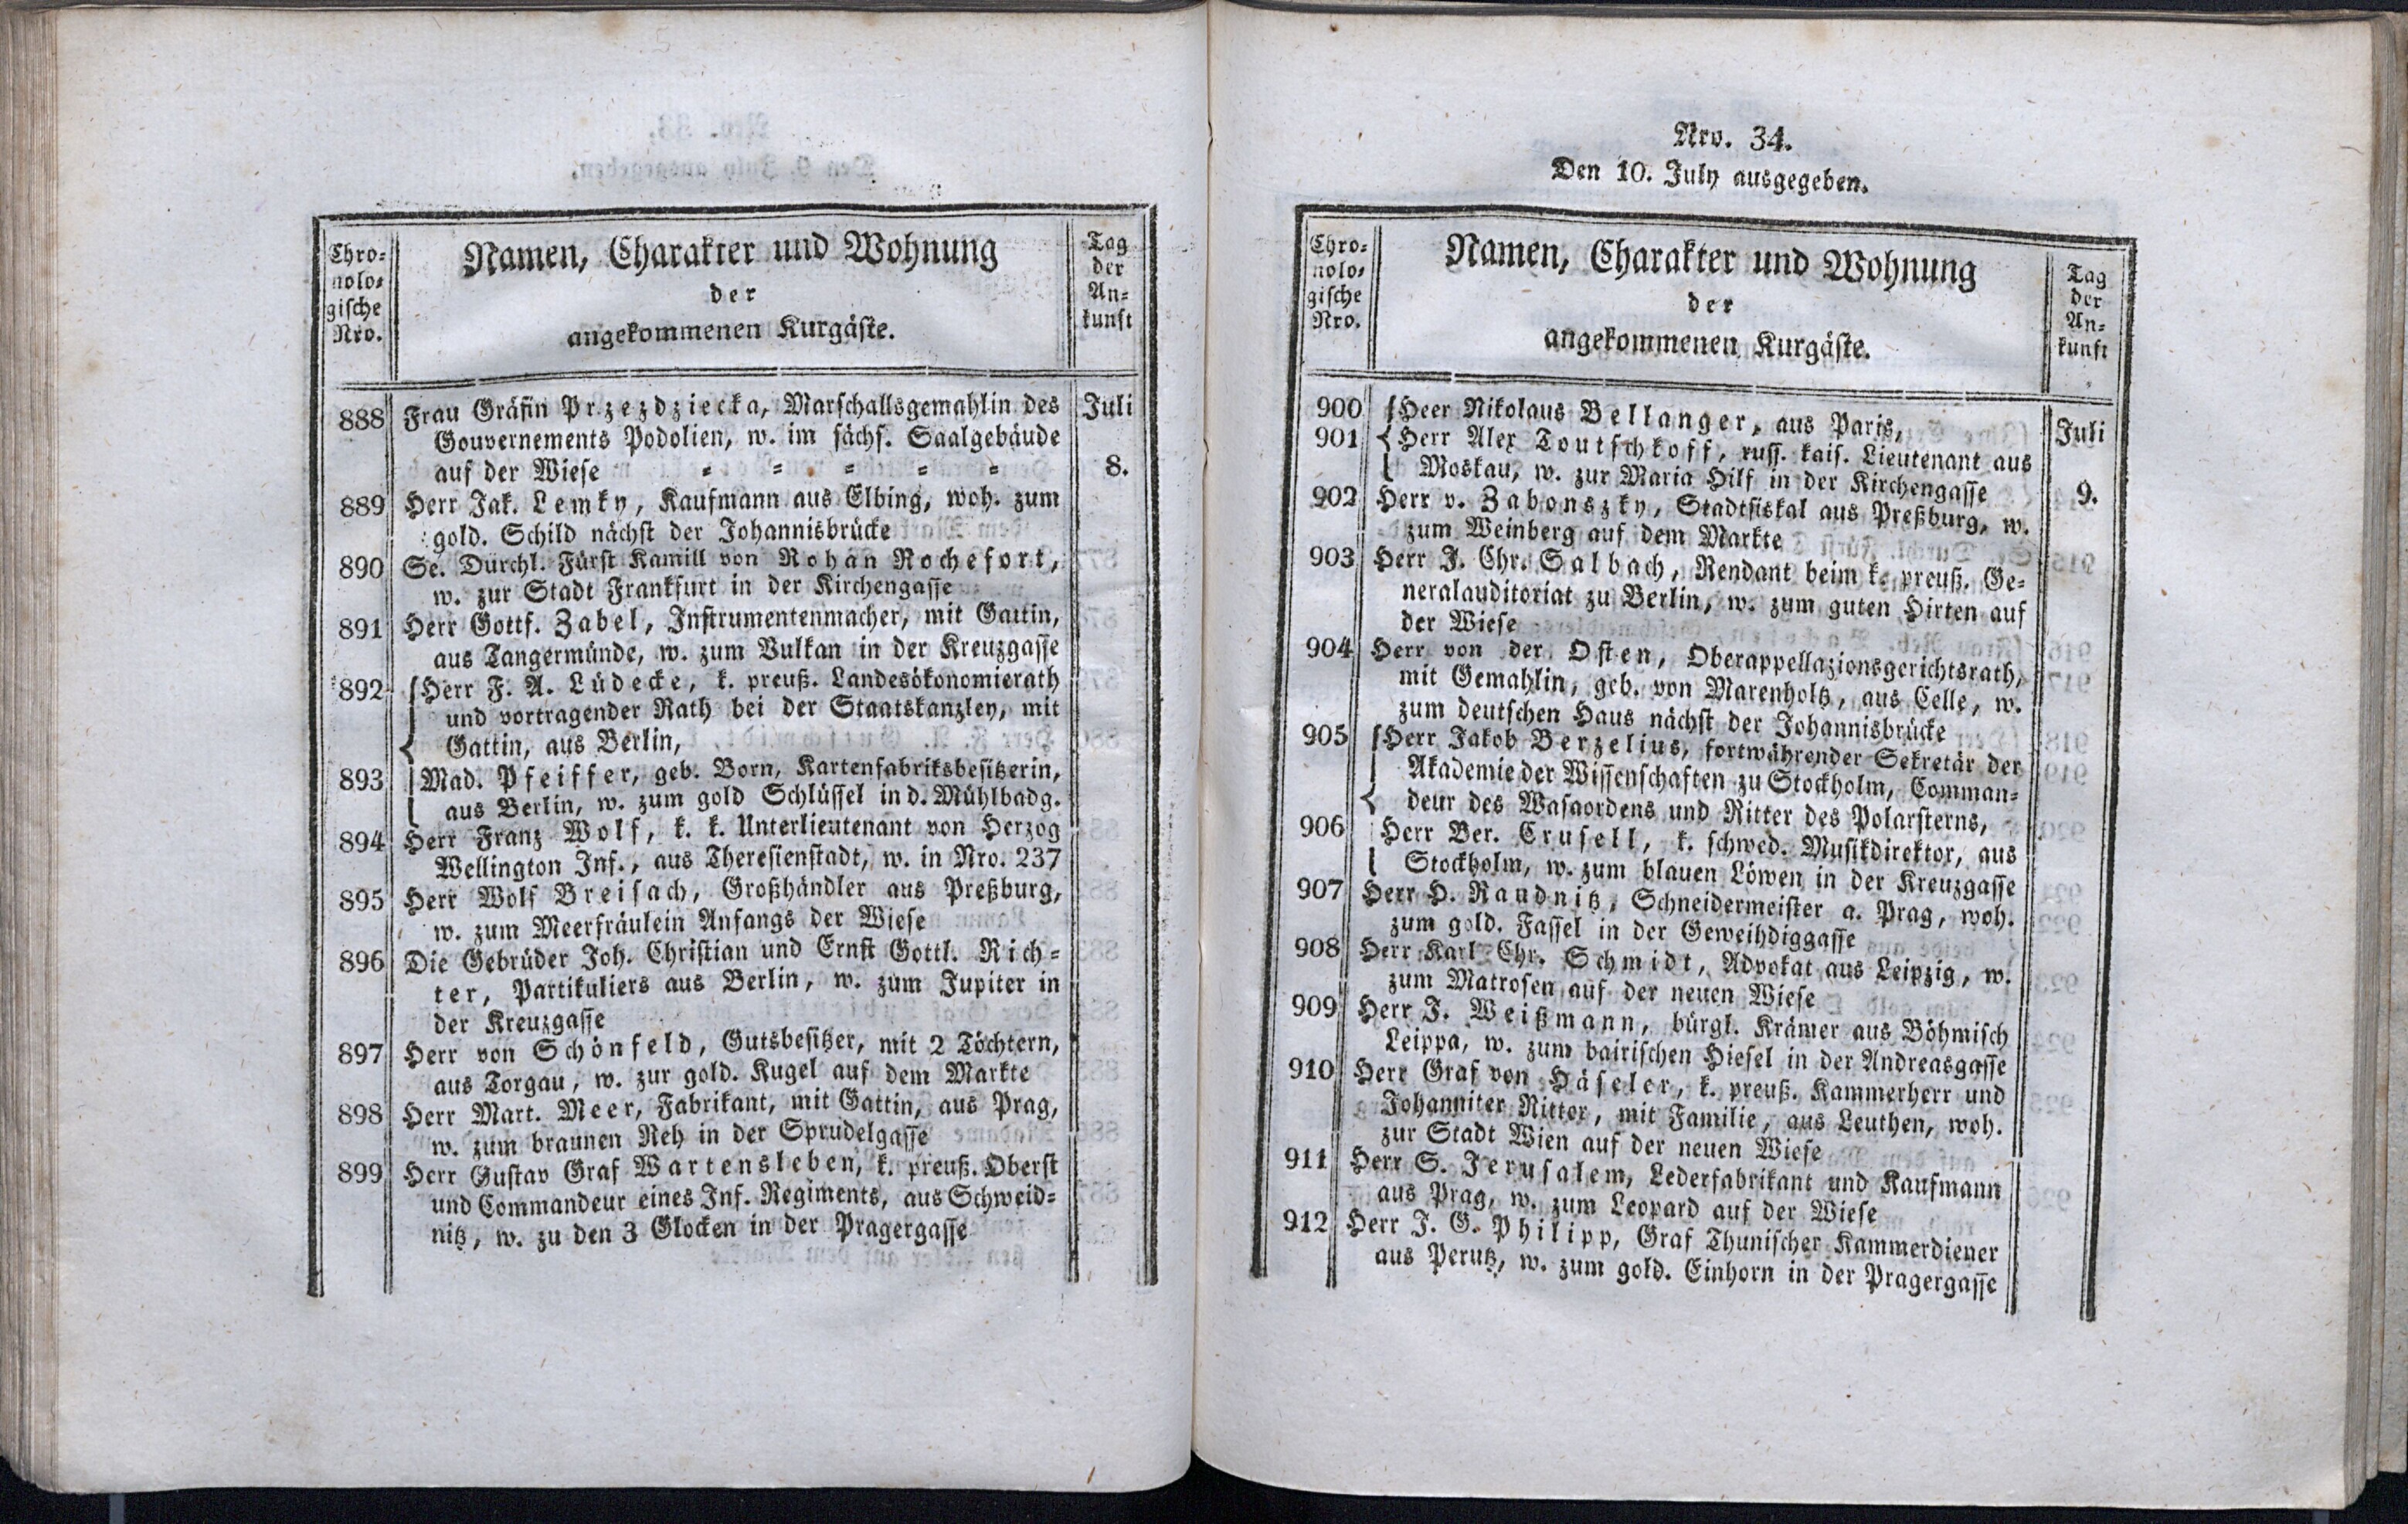 Chro-
nolo-
gische
Nro.
Namen, Charakter und Wohnung
der
angekommenen Kurgäste.
Tag
der
An-
kunft
888 Frau Gräfin Przezdziecka, Marschallsgemahlin des Juli
Gouvernements Podolien, w. im sächs. Saalgebäude
auf der Wiese = = = = = 8.
889 Herr Jak. Lemky, Kaufmann aus Elbing, woh. zum
gold. Schild nächst der Johannisbrücke
890 Se. Durchl. Fürst Kamill von Rohan Rochefort,
w. zur Stadt Frankfurt in der Kirchengasse
891 Herr Gottf. Zabel, Instrumentenmacher, mit Gattin,
aus Tangermünde, w. zum Vulkan in der Kreuzgasse
892 Herr F. A. Lüdecke, k. preuß. Landesökonomierath
und vortragender Rath bei der Staatskanzley, mit
Gattin, aus Berlin,
893 Mad. Pfeiffer, geb. Born, Kartenfabriksbesitzerin,
aus Berlin, w. zum gold Schlüssel in d. Mühlbadg.
894 Herr Franz Wolf, k. k. Unterlieutenant von Herzog
Wellington Inf., aus Theresienstadt, w. in Nro. 237
895 Herr Wolf Breisach, Großhändler aus Preßburg,
w. zum Meerfräulein Anfangs der Wiese
896 Die Gebrüder Joh. Christian und Ernst Gottl. Rich-
ter, Partikuliers aus Berlin, w. zum Jupiter in
der Kreuzgasse
897 Herr von Schönfeld, Gutsbesitzer, mit 2 Töchtern,
aus Torgau, w. zur gold. Kugel auf dem Markte
898 Herr Mart. Meer, Fabrikant, mit Gattin, aus Prag,
w. zum braunen Reh in der Sprudelgasse
899 Herr Gustav Graf Wartensleben, k. preuß. Oberst
und Commandeur eines Inf. Regiments, aus Schweid-
nitz, w. zu den 3 Glocken in der Pragergasse
Nro. 34.
Den 10. July ausgegeben.
Chro-
nolo-
gische
Nro.
Namen, Charakter und Wohnung
der
angekommenen Kurgäste.
Tag
der
An-
kunft
900 Heer Nikolaus Bellanger, aus Paris, Juli
901 Herr Alex Toutschkoff, russ. kais. Lieutenant aus
Moskau, w. zur Maria Hilf in der Kirchengasse 9.
902 Herr v. Zabonszky, Stadtfiskal aus Preßburg, w.
zum Weinberg auf dem Markte
903 Herr J. Chr. Salbach, Rendant beim k. preuß. Ge-
neralauditoriat zu Berlin, w. zum guten Hirten auf
der Wiese
904 Herr von der Osten, Oberappellazionsgerichtsrath,
mit Gemahlin, geb. von Marenholtz, aus Celle, w.
zum deutschen Haus nächst der Johannisbrücke
905 Herr Jakob Berzelius, fortwährender Sekretär der
Akademie der Wissenschaften zu Stockholm, Comman-
deur des Wasaordens und Ritter des Polarsterns,
906 Herr Ber. Crusell, k. schwed. Musikdirektor, aus
Stockholm, w. zum blauen Löwen in der Kreuzgasse
907 Herr H. Raudnitz, Schneidermeister a. Prag, woh.
zum gold. Fassel in der Geweihdiggasse
908 Herr Karl Chr. Schmidt, Advokat aus Leipzig, w.
zum Matrosen auf der neuen Wiese
909 Herr J. Weißmann, bürgl. Krämer aus Böhmisch
Leippa, w. zum bairischen Hiesel in der Andreasgasse
910 Herr Graf von Häseler, k. preuß. Kammerherr und
Johanniter Ritter, mit Familie, aus Leuthen, woh.
zur Stadt Wien auf der neuen Wiese
911 Herr S. Jerusalem, Lederfabrikant und Kaufmann
aus Prag, w. zum Leopard auf der Wiese
912 Herr J. G. Philipp, Graf Thunischer Kammerdiener
aus Perutz, w. zum gold. Einhorn in der Pragergasse